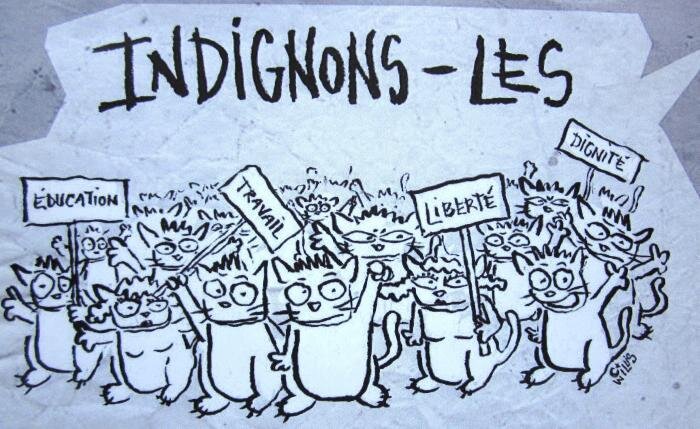 INDIGNONS-LES
ÉDUCATION
TRAVAIL
LIBERTÉ
DIGNITÉ
WILLIS